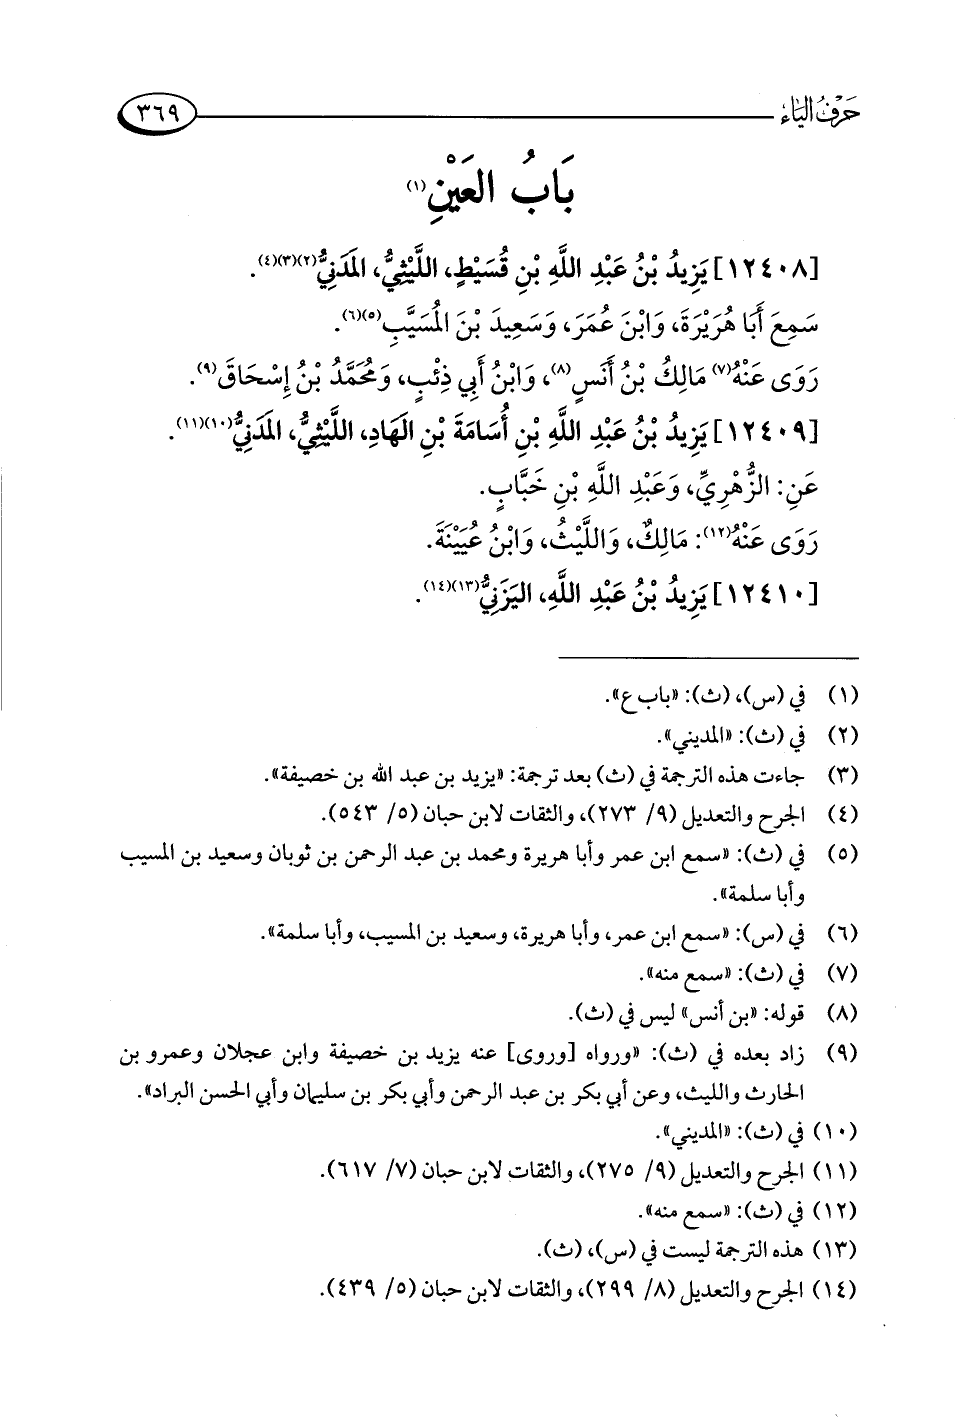 حَرْفُ اليَاءِ
٣٦٩
بَابُ العَيْنِ(١)
[١٢٤٠٨] يَزِيدُ بْنُ عَبْدِ اللَّهِ بْنِ قُسَيْطٍ، اللَّيْثِيُّ، المَدَنِيُّ(٢)(٣)(٤).
سَمِعَ أَبَا هُرَيْرَةَ، وَابْنَ عُمَرَ، وَسَعِيدَ بْنَ المُسَيَّبِ(٥)(٦).
رَوَى عَنْهُ(٧) مَالِكُ بْنُ أَنَسٍ(٨)، وَابْنُ أَبِي ذِئْبٍ، وَمُحَمَّدُ بْنُ إِسْحَاقَ(٩).
[١٢٤٠٩] يَزِيدُ بْنُ عَبْدِ اللَّهِ بْنِ أُسَامَةَ بْنِ الهَادِ، اللَّيْثِيُّ، المَدَنِيُّ(١٠)(١١).
عَنِ: الزُّهْرِيِّ، وَعَبْدِ اللَّهِ بْنِ خَبَّابٍ.
رَوَى عَنْهُ(١٢): مَالِكٌ، وَاللَّيْثُ، وَابْنُ عُيَيْنَةَ.
[١٢٤١٠] يَزِيدُ بْنُ عَبْدِ اللَّهِ، اليَزَنِيُّ(١٣)(١٤).
(١) في (س)، (ث): «باب ع».
(٢) في (ث): «المديني».
(٣) جاءت هذه الترجمة في (ث) بعد ترجمة: «يزيد بن عبد الله بن خصيفة».
(٤) الجرح والتعديل (٩/ ٢٧٣)، والثقات لابن حبان (٥/ ٥٤٣).
(٥) في (ث): «سمع ابن عمر وأبا هريرة ومحمد بن عبد الرحمن بن ثوبان وسعيد بن المسيب
وأبا سلمة».
(٦) في (س): «سمع ابن عمر، وأبا هريرة، وسعيد بن المسيب، وأبا سلمة».
(٧) في (ث): «سمع منه».
(٨) قوله: «بن أنس» ليس في (ث).
(٩) زاد بعده في (ث): «ورواه [وروى] عنه يزيد بن خصيفة وابن عجلان وعمرو بن
الحارث والليث، وعن أبي بكر بن عبد الرحمن وأبي بكر بن سليمان وأبي الحسن البراد».
(١٠) في (ث): «المديني».
(١١) الجرح والتعديل (٩/ ٢٧٥)، والثقات لابن حبان (٧/ ٦١٧).
(١٢) في (ث): «سمع منه».
(١٣) هذه الترجمة ليست في (س)، (ث).
(١٤) الجرح والتعديل (٨/ ٢٩٩)، والثقات لابن حبان (٥/ ٤٣٩).